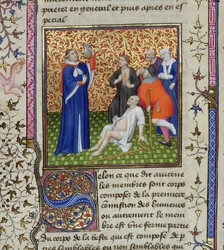 parler en general et puis apres en es
pecial
Selon ce que dit auicene
les membres sont corps
composez de la premiere
comistion des humeurs
ou autrement le mem
bre est une ferme partie
du corps de la beste qui est compose de
semblables ou non semblables